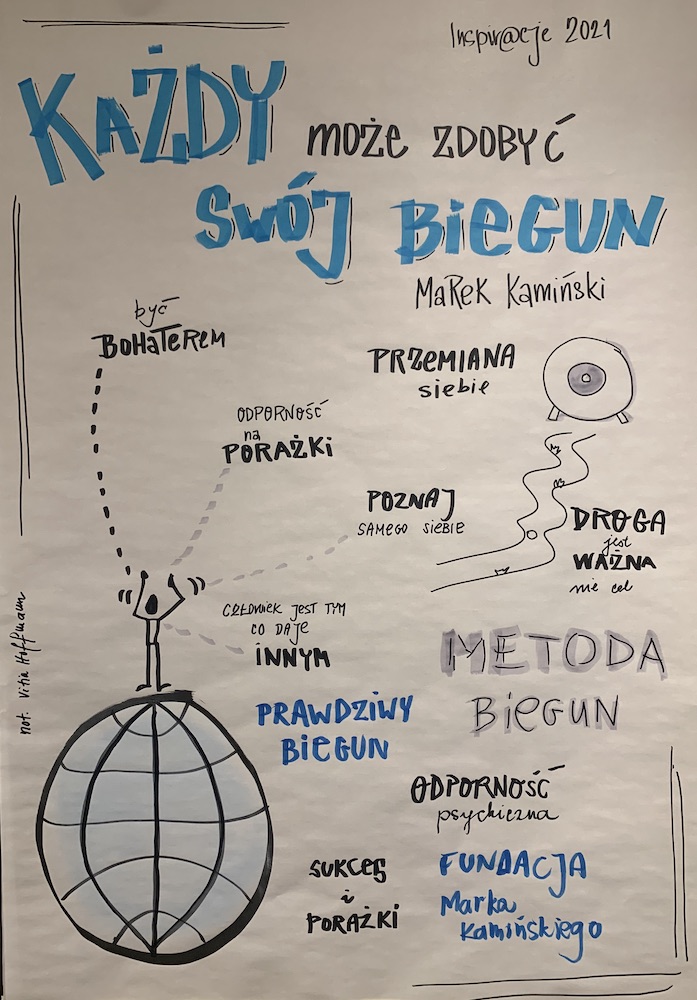 Inspir@cje 2021
KAŻDY
może zdobyć
swój Biegun
Marek Kamiński
być
Bohaterem
ODPORNOŚĆ
na
PORAŻKi
PRZEMIANA
siebie
POZNAJ
SAMEGO SIEBIE
DROGA
jest
WAŻNA
nie cel
CZŁOWIEK JEST TYM
CO DAJE
iNNYM
METODA
BiEGUN
PRAWDZIWY
BIEGUN
ODPORNOŚĆ
psychiczna
SUKCES
i
PORAŻKI
FUNDACJA
Marka
Kamińskiego
not. Vitia Hoffmann